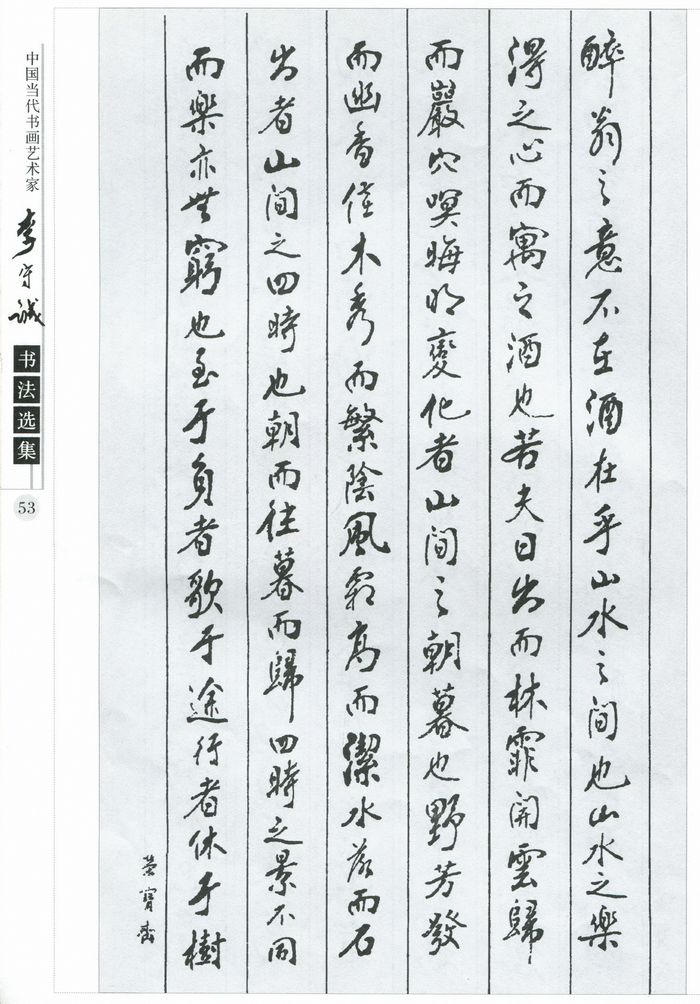 醉翁之意不在酒在乎山水之間也山水之樂
得之心而寓之酒也若夫日出而林霏開雲歸
而巖穴暝晦明變化者山間之朝暮也野芳發
而幽香佳木秀而繁陰風霜高而潔水落而石
出者山間之四時也朝而往暮而歸四時之景不同
而樂亦無窮也至于負者歌于途行者休于樹
榮寶齋
中国当代书画艺术家
李守诚
书法选集
53